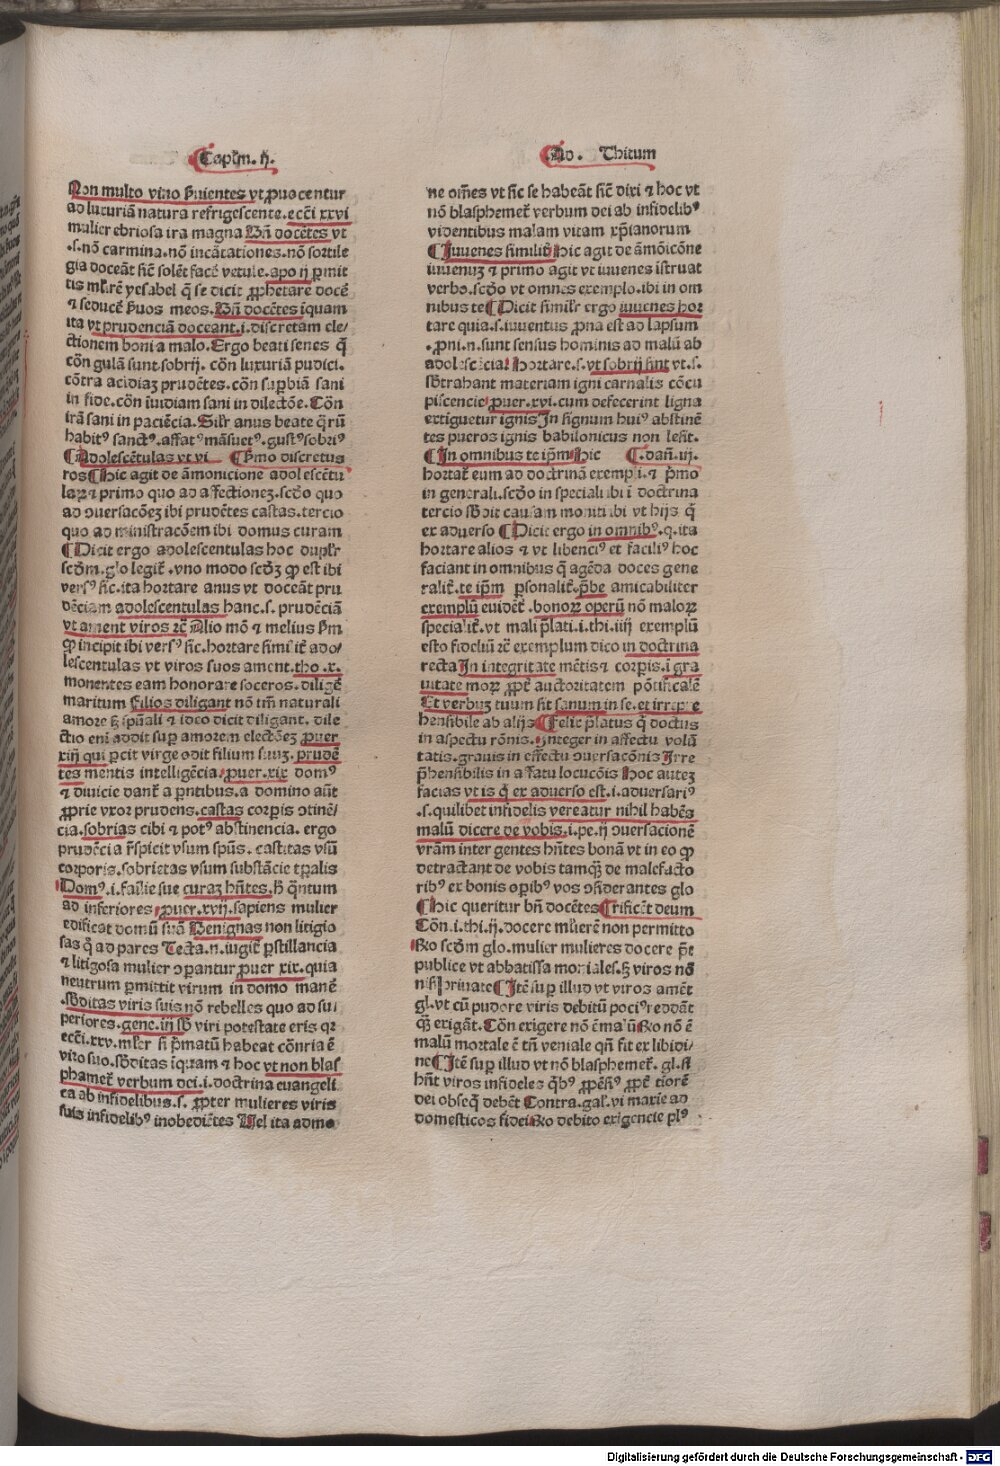 Capłm. ij.
Ad. Thitum
Non multo vino ẜuientes vt ꝓuocentur
ad luxuriā natura refrigescente. ecci xxvi
mulier ebriosa ira magna Bn̄ docētes vt
.s. nō carmina. nō incātationes. nō sortile
gia doceāt sic̄ solēt facē vetule. apo ij ꝑmit
tis ml̄rē yesabel q̄ se dicit ꝓphetare docē
⁊ seducē ẜuos meos. Bn̄ docētes iquam
ita vt prudenciā doceant .i. discretam ele/
ctionem boni a malo. Ergo beati senes q̄
cōn gulā sunt sobrij. cōn luxuriā pudici.
cōtra acidiaꝫ prudētes. cōn suꝑbiā sani
in fide. cōn īuidiam sani in dilectōe. Cōn
irā sani in paciēcia. Silr̄ anus beate q̄rū
habitꝰ sanctꝰ. affatꝰ māsuetꝰ. gustꝰ sobriꝰ
¶ Adolescētulas vt vi ¶ Pͥmo discretus
ros ¶ Hic agit de āmonicione adolescētu
laꝝ ⁊ primo quo ad affectionez. scd̄o quo
ad ꝯuersacōeꝫ ibi prudētes castas. tercio
quo ad ministracōem ibi domus curam
¶ Dicit ergo adolescentulas hoc duplr̄
scd̄m. glo legit̄. vno modo scd̄ꝫ ꝙ est ibi
versꝰ sic. ita hortare anus vt doceāt pru
dēciam adolescentulas hanc .s. prudēciā
vt ament viros ⁊c̄ Alio mō ⁊ melius ẜm
ꝙ incipit ibi versꝰ sic. hortare simil̄it̄ ado/
lescentulas vt viros suos ament. tho. x.
monentes eam honorare soceros. diligē
maritum Filios diligant nō tm̄ naturali
amore ꝫ spūali ⁊ ideo dicit diligant. dile
ctio eni addit suꝑ amorem electōeꝫ ꝓuer
xiij qui ꝑcit virge odit filium suuꝫ. prudē
tes mentis intelligēcia. ꝓuer. xix domꝰ
⁊ diuicie dant̄ a ꝑntibus. a domino aūt
ꝓprie vxor prudens. castas corꝑis ꝯtinē/
cia. sobrias cibi ⁊ potꝰ abstinencia. ergo
prudēcia r̄spicit vsum spūs. castitas vsū
corporis. sobrietas vsum substācie tꝑalis
Domꝰ .i. familie sue curaꝫ hn̄tes. ꝫ q̄ntum
ad inferiores. ꝓuer. xvij. sapiens mulier
edificat domū suā Benignas non litigio
sas q̄ ad pares Tecta .n. iugit̄ ꝑstillancia
⁊ litigosa mulier ꝯꝑantur ꝓuer xix. quia
neutrum ꝑmittit virum in domo manē
.sb̄ditas viris suis nō rebelles quo ad su/
periores. gene. iij sb̄ viri potestate eris qꝛ
ecci. xxv. ml̄er si ꝑmatū habeat cōnria ē
viro suo. sb̄ditas īquam ⁊ hoc vt non blas
phamet̄ verbum dei .i. doctrina euangeli
ca ab infidelibus .s. ꝓpter mulieres viris
suis infidelibꝰ inobediētes Vel ita admo
ne om̄es vt sic se habeāt sic̄ dixi ⁊ hoc vt
nō blasphemet̄ verbum dei ab infidelibꝰ
videntibus malam vitam xp̄ianorum
¶ Iuuenes similit̄ Hic agit de āmōicōne
iuuenuꝫ ⁊ primo agit vt iuuenes īstruat
verbo. scd̄o vt omnes exemplo. ibi in om
nibus te ¶ Dicit similr̄ ergo iuuenes hor
tare quia .s. iuuentus ꝓna est ad lapsum
. ꝓni .n. sunt sensus hominis ad malū ab
adolescēcia Hortare .s. vt sobrij sint vt .s.
sb̄trahant materiam igni carnalis cōcu
piscencie ꝓuer. xvi. cum defecerint ligna
extiguetur ignis In signum huiꝰ abstinē
tes pueros ignis babilonicus non lesit.
¶ In omnibus te ip̄m Hic ¶ . dan̄. iij.
hortat̄ eum ad doctrinā exempli. ⁊ pͥmo
in generali. scd̄o in speciali ibi ī doctrina
tercio sb̄dit causam moniti ibi vt hijs q̄
ex aduerso ¶ Dicit ergo in omnibꝰ .q. ita
hortare alios ⁊ vt libenciꝰ et faciliꝰ hoc
faciant in omnibus q̄ agēda doces gene
ralit̄. te ip̄m ꝑsonalit̄. p̄be amicabiliter
exemplū euidēt̄. bonoꝝ operū nō maloꝝ
specialit̄. vt mali p̄lati. i. thi. iiij exemplū
esto fideliū ⁊c̄ exemplum dico in doctrina
recta In integritate mētis ⁊ corꝑis. ī gra
uitate moꝝ ꝓpt̄ auctoritatem pōtificalē
Et verbuꝫ tuum sit sanum in se. et irrepre
hensibile ab alijs ¶ Felix p̄latus q̄ doctus
in aspectu rōnis. Integer in affectu volū
tatis. grauis in effectu ꝯuersacōnis Irre
p̄hensibilis in affatu locucōis Hoc auteꝫ
facias vt is q̄ ex aduerso est .i. aduersariꝰ
.s. quilibet infidelis vereatur nihil habēs
malū dicere de vobis. i. pe. ij ꝯuersacionē
vr̄am inter gentes hn̄tes bonā vt in eo ꝙ
detractant de vobis tamqꝫ de malefacto
ribꝰ ex bonis oꝑibꝰ vos ꝯsiderantes glo
¶ Hic queritur bn̄ docētes ¶ rificēt deum
Cōn. i. thi. ij. docere mulierē non permitto
Ro scd̄m glo. mulier mulieres docere p̄t
publice vt abbatissa moniales. ꝫ viros nō
nisi priuate ¶ Itē suꝑ illud vt viros amēt
gl. vt cū pudore viris debitū pociꝰ reddāt
qꝫ exigāt. Cōn exigere nō ē malū Ro nō ē
malū mortale ē tn̄ veniale qn̄ fit ex libidi/
ne ¶ Itē suꝑ illud vt nō blasphemet̄. gl. si
hn̄t viros infideles q̄bꝰ ꝓpēsiꝰ ꝓpt̄ tiorē
dei obseq̄ debēt Contra. gal. vi maxīe ad
domesticos fidei Ro debito exigencie plꝰ
Digitalisierung gefördert durch die Deutsche Forschungsgemeinschaft - DFG